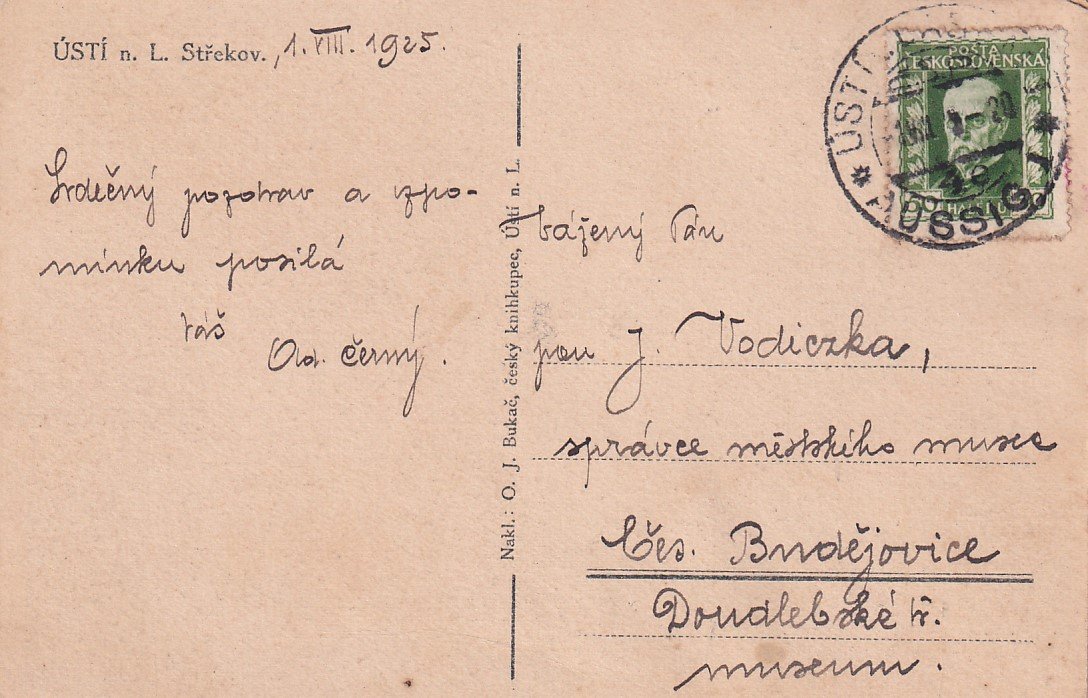 ÚSTÍ n. L. Střekov. 1. VIII. 1925.
Srdečný pozdrav a vzpo-
mínku posílá
Váš
Ad. Černý.
Nakl.: O. J. Bukač, český knihkupec, Ústí n. L.
POŠTA
ČESKOSLOVENSKÁ
ÚSTÍ
AUSSIG
Vážený Pán
pan J. Vodiczka,
správce městského musea
Čes. Budějovice
Doudlebské tř.
museum.